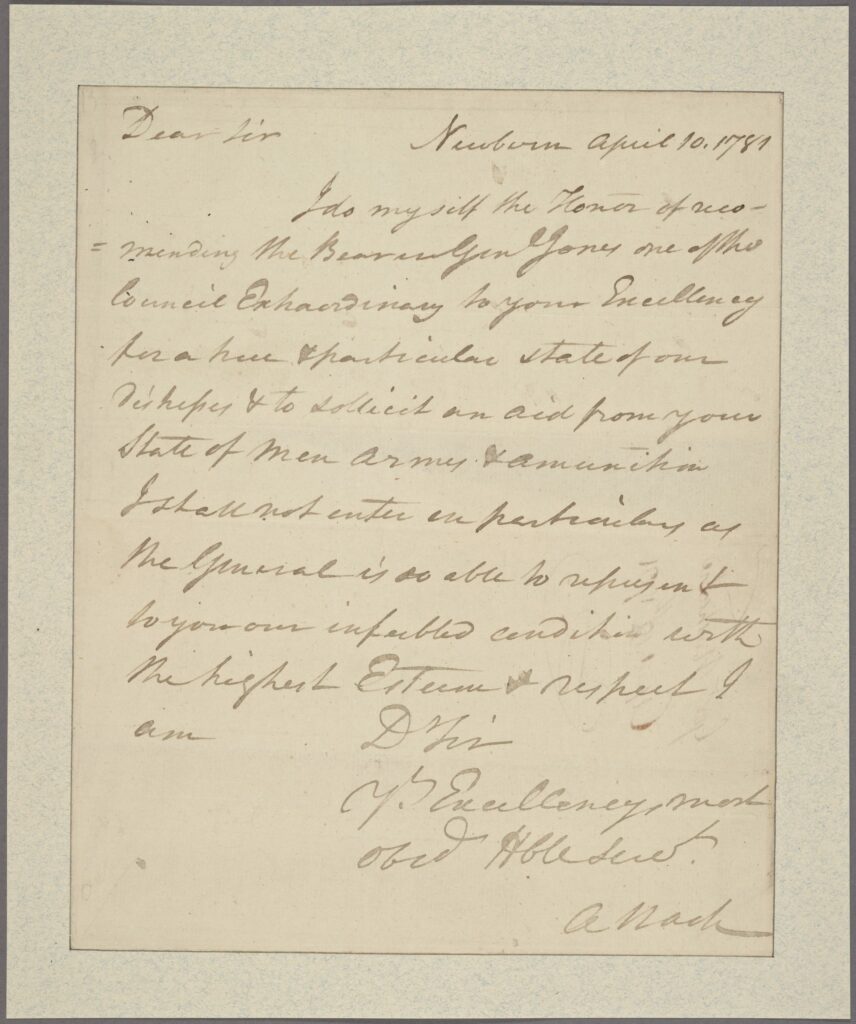 Dear Sir
Newbern April 10. 1781
I do myself the Honor of reco-
= mending the Bearer Gen Jones one of the
Council Extraordinary to your Excellency
for a true & particular state of our
distresses & to sollicit an aid from your
State of Men Armes & amunition
I shall not enter on particulars as
the General is so able to represent
to you our enfeebled condition with
the highest Esteem & respect I
am
Dr Sir
Yr Excellencys most
obed Hble Servt.
A Nash